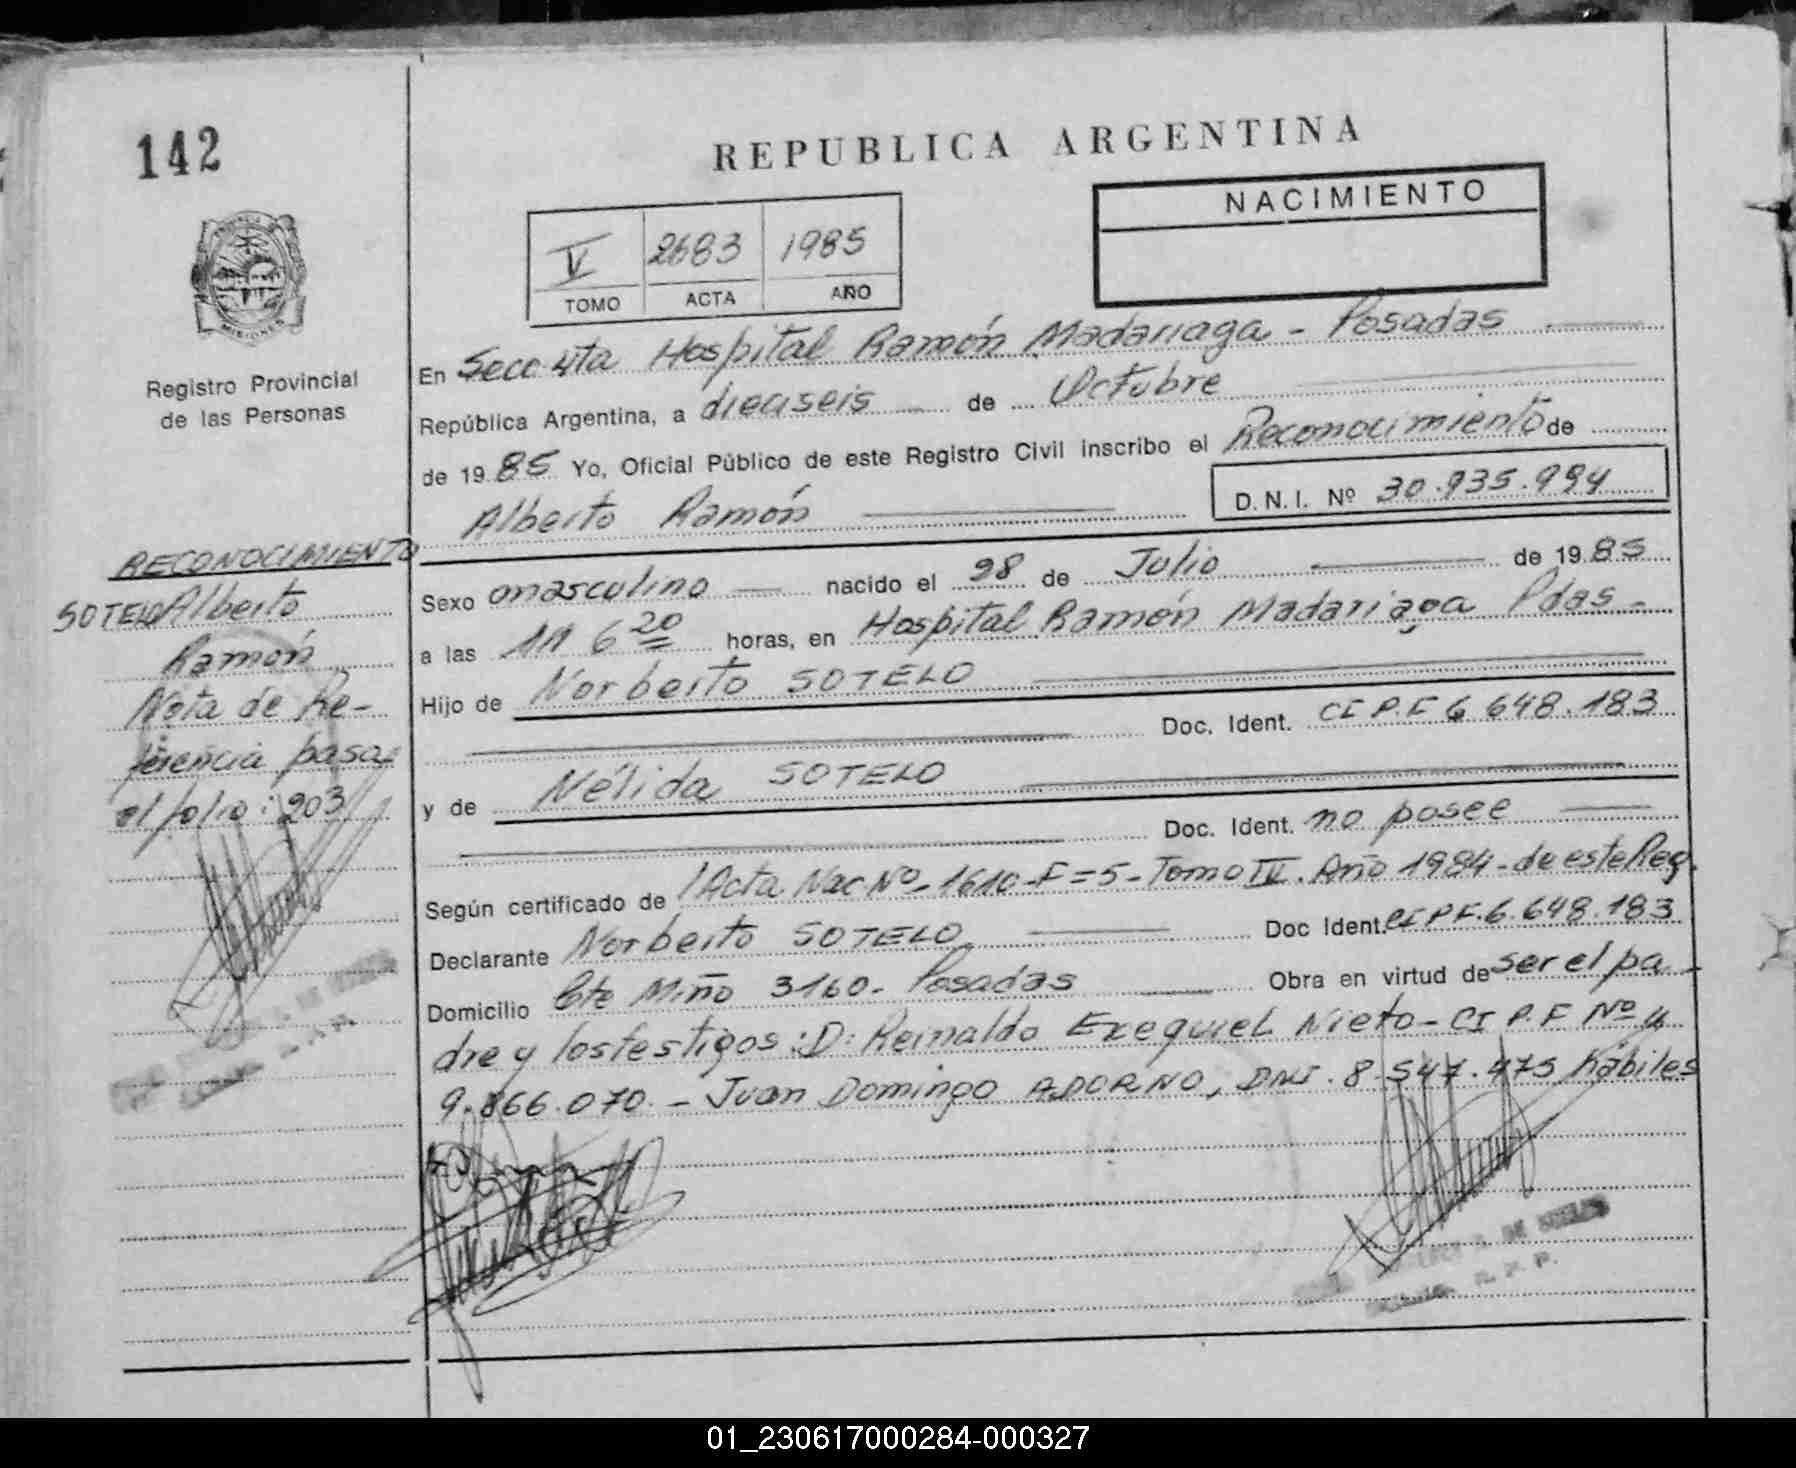 142
REPUBLICA ARGENTINA
NACIMIENTO
V 2683 1985
TOMO ACTA AÑO
MISIONES
Registro Provincial
de las Personas
En Secc 4ta Hospital Ramón Madariaga - Posadas
República Argentina, a dieciseis de Octubre
de 1985 Yo, Oficial Público de este Registro Civil inscribo el Reconocimiento de
Alberto Ramón D.N.I. Nº 30.935.994
RECONOCIMIENTO
SOTELO Alberto
Ramón
Nota de Re-
ferencia pasa
al folio: 203
Sexo masculino nacido el 28 de Julio de 1985
a las 6 20 horas, en Hospital Ramón Madariaga Pdas -
Hijo de Norberto SOTELO
Doc. Ident. CI P.F 6 648.183
y de Nélida SOTELO
Doc. Ident. no posee
Según certificado de /Acta Nac. Nº - 1610 - F=5 - Tomo IV. Año 1984 - de este Reg.
Declarante Norberto SOTELO Doc Ident. CI PF. 6.648.183
Domicilio Cte Miño 3160 - Posadas Obra en virtud de ser el pa
dre y los testigos: D: Reinaldo Exequiel Nieto - CI P.F Nº
9.866.070. - Juan Domingo ADORNO, DNI. 8.547.475 hábiles
01_230617000284-000327